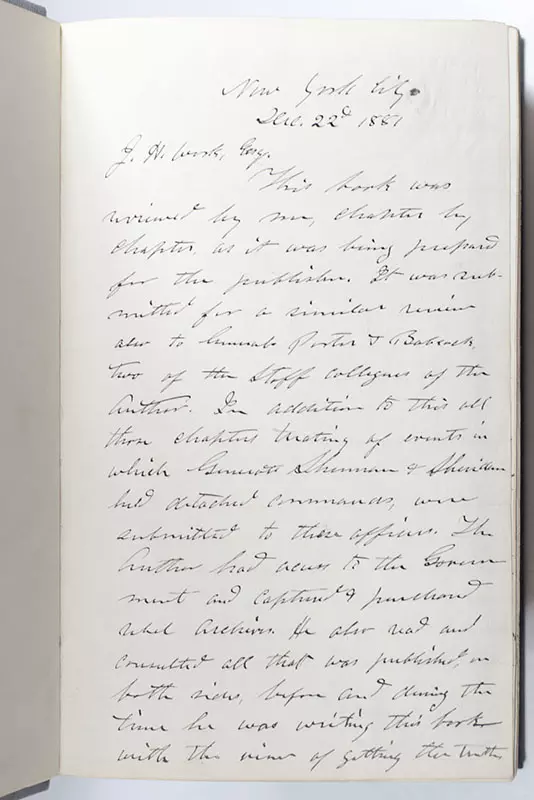 New York City
Dec. 22d 1881
J. H. Work, Esq.
This book was
reviewed by me, chapter by
chapter, as it was being prepared
for the publisher. It was sub-
mitted for a similar review
also to Generals Porter & Babcock,
two of the Staff collegues of the
Author. In addition to this all
those chapters treating of events in
which Generals Sherman & Sheridan
held detached commands, were
submitted to these officers. The
Author had access to the Govern
ment and captured & purchased
rebel archives. He also read and
consulted all that was published, on
both sides, before and during the
time he was writing this book
with the view of getting the truth